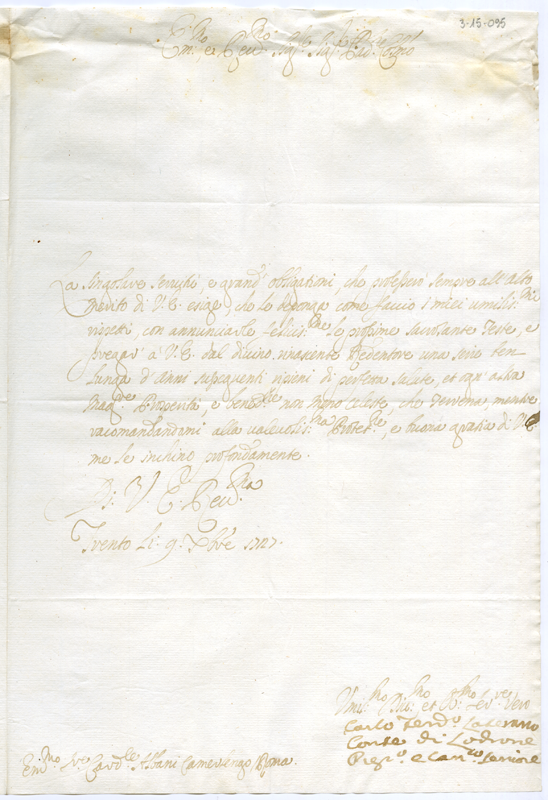 3-15-095
Em.mo et Rev.mo Sig.re Sig.re Pad.ne Col.mo
La singolare servitù, e grand' obligationi, che professai sempre all' alto
merito di V.E. esige, che lo deponga come faccio i miei umilis.mi
rispetti, con annunciarle felicis.me le prossime sacrosante feste, e
pregar' à V.E. dal divino nascente Redentore una serie ben
lunga d' Anni susseguenti ripieni di perfetta salute, et ogn' altra
mag.re Prosperità, e bened.ne non meno celeste, che terrena, mentre
racomandandomi alla valevolis.ma Protet.ne, e buona gratia di V.E.
me le inchino profondamente.
Di V. E. Rev.ma
Trento li 9. Xbre 1727.
Umil.mo Div.mo et Ob.mo Ser.re Vero
Carlo Ferd.o
Conte di Lodrone
e Can.co Seniore
Em.mo Sr. Card.le Albani Camerlengo Roma.